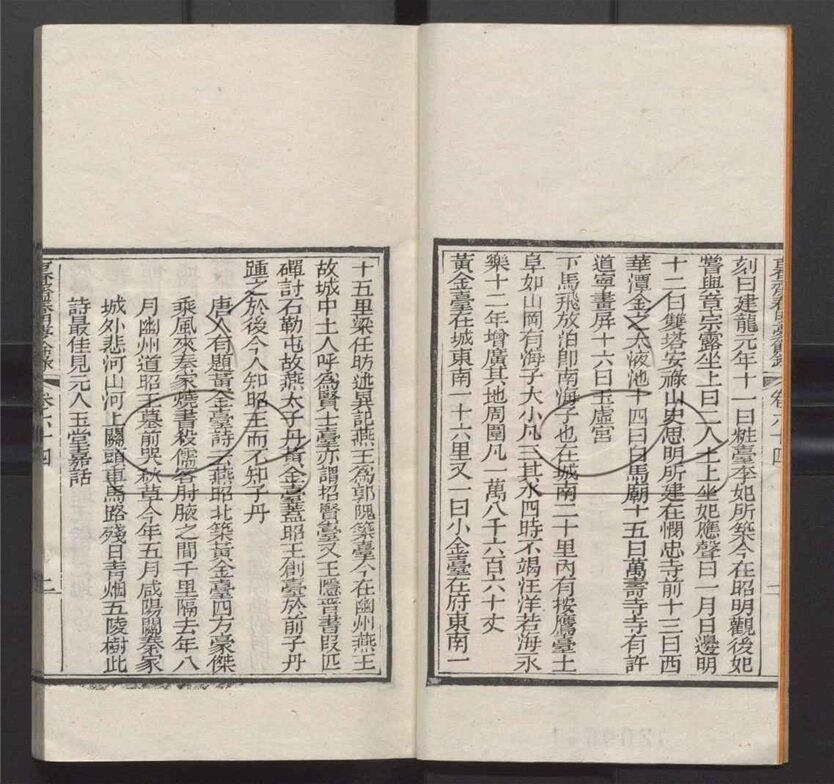 刻曰建龍元年十一曰粧臺李妃所築今在昭明觀後妃
嘗與章宗露坐上曰二人土上坐妃應聲曰一月日邊明
十二曰雙塔安祿山史思明所建在憫忠寺前十三曰西
華潭金之太液池十四曰白馬廟十五曰萬壽寺寺有許
道寧畫屏十六曰玉虛宮
下馬飛放泊卽南海子也在城南二十里內有按鷹臺土
阜如山岡有海子大小凡三其水四時不竭汪洋若海永
樂十二年增廣其地周圍凡一萬八千六百六十丈
黃金臺在城東南一十六里又一曰小金臺在府東南一
春明夢餘錄
卷六十四
一
十五里梁任昉述異記燕王為郭隗築臺今在幽州燕王
故城中土人呼為賢士臺亦謂招賢臺又王隱晉書叚匹
磾討石勒屯故燕太子丹黃金臺蓋昭王創臺於前子丹
踵之於後今人知昭王而不知子丹
唐人有題黃金臺詩云燕昭北築黃金臺四方豪傑
乘風來秦家燒書殺儒客肘腋之間千里隔去年八
月幽州道昭王墓前哭秋草今年五月咸陽關秦家
城外悲河山河上關頭車馬路殘日青烟五陵樹此
詩最佳見元人玉堂嘉話
春明夢餘錄
卷六十四
二